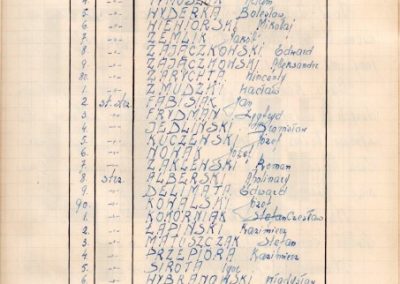 4. -"- Adam
5. -"- WYDERKA Bolesław
6. -"- Mikołaj
7. -"- ZEMLIK
8. -"- ZAJĄCZKOWSKI Edward
9. -"- ZAJĄCZKOWSKI Aleksander
80. -"- ZARYCHTA Wincenty
1. -"- ŻMUDZKI Wacław
2. st. strz. FABISIAK Jan
3. -"- FRYDMAN Zygfryd
4. -"- JEDLIŃSKI Bronisław
5. -"- KUCZEWSKI Józef
6. -"- NOWAK Józef
7. -"- ZAKLEŃSKI Roman
8. strz. ALBERSKI Apolinary
9. -"- DELIMATA Edward
90. -"- KOWALSKI Józef
1. -"- KOMORNIAK Stefan Czesław
2. -"- ŁAPIŃSKI Kazimierz
3. -"- MATUSZCZAK Stefan
4. -"- PRZEPIÓRA Kazimierz
5. -"- SIROTA
6. -"- HYBRANOWSKI Władysław